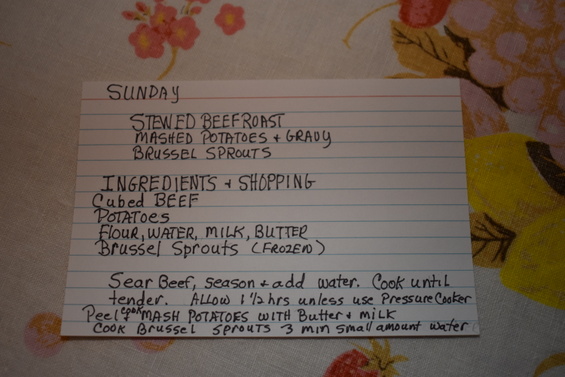 SUNDAY
STEWED BEEFROAST
MASHED POTATOES + GRAVY
BRUSSEL SPROUTS
INGREDIENTS + SHOPPING
Cubed BEEF
POTATOES
FLOUR, WATER, MILK, BUTTER
Brussel Sprouts (FROZEN)
Sear Beef, season + add water. Cook until
tender. ALLOW 1 1/2 hrs unless use Pressure Cooker
Peel + cook MASH POTATOES WITH Butter + milk
COOK BRUSSEL SPROUTS 3 min small amount water